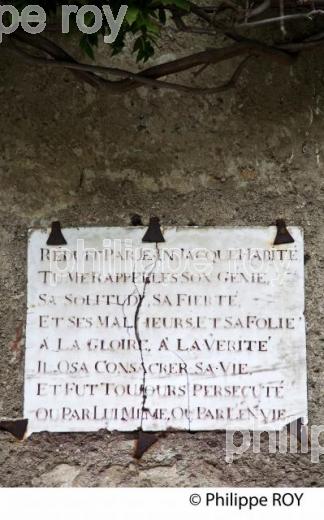 photoproroy.com
REDUIT PAR JEAN JACQUE HABITÉ
TU ME RAPPELLES SON GENIE,
SA SOLITUDE, SA FIERTÉ,
ET SES MALHEURS, ET SA FOLIE
A LA GLOIRE, A LA VERITÉ
IL OSA CONSACRER SA VIE,
ET FUT TOUJOURS PERSECUTÉ
OU PAR LUI MEME, OU PAR L'ENVIE
© Philippe ROY